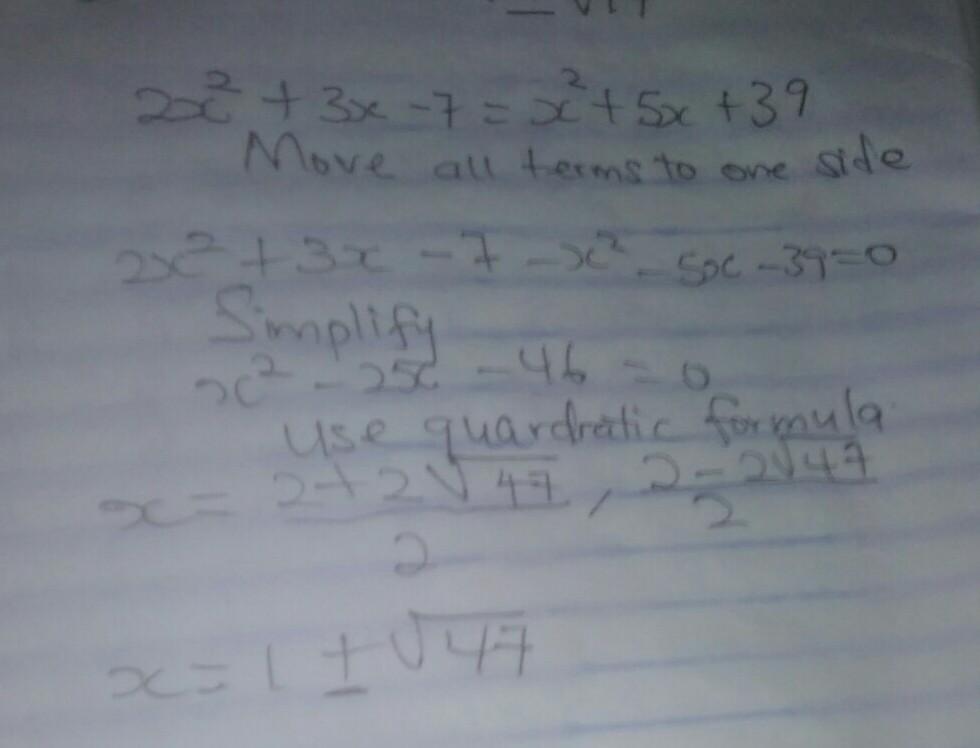 2x² + 3x - 7 = x² + 5x + 39
Move all terms to one side
2x² + 3x - 7 - x² - 5x - 39 = 0
Simplify
x² - 2x - 46 = 0
use quardratic formula
x = 2 + 2√47 / 2 , 2 - 2√47 / 2
x = 1 ± √47